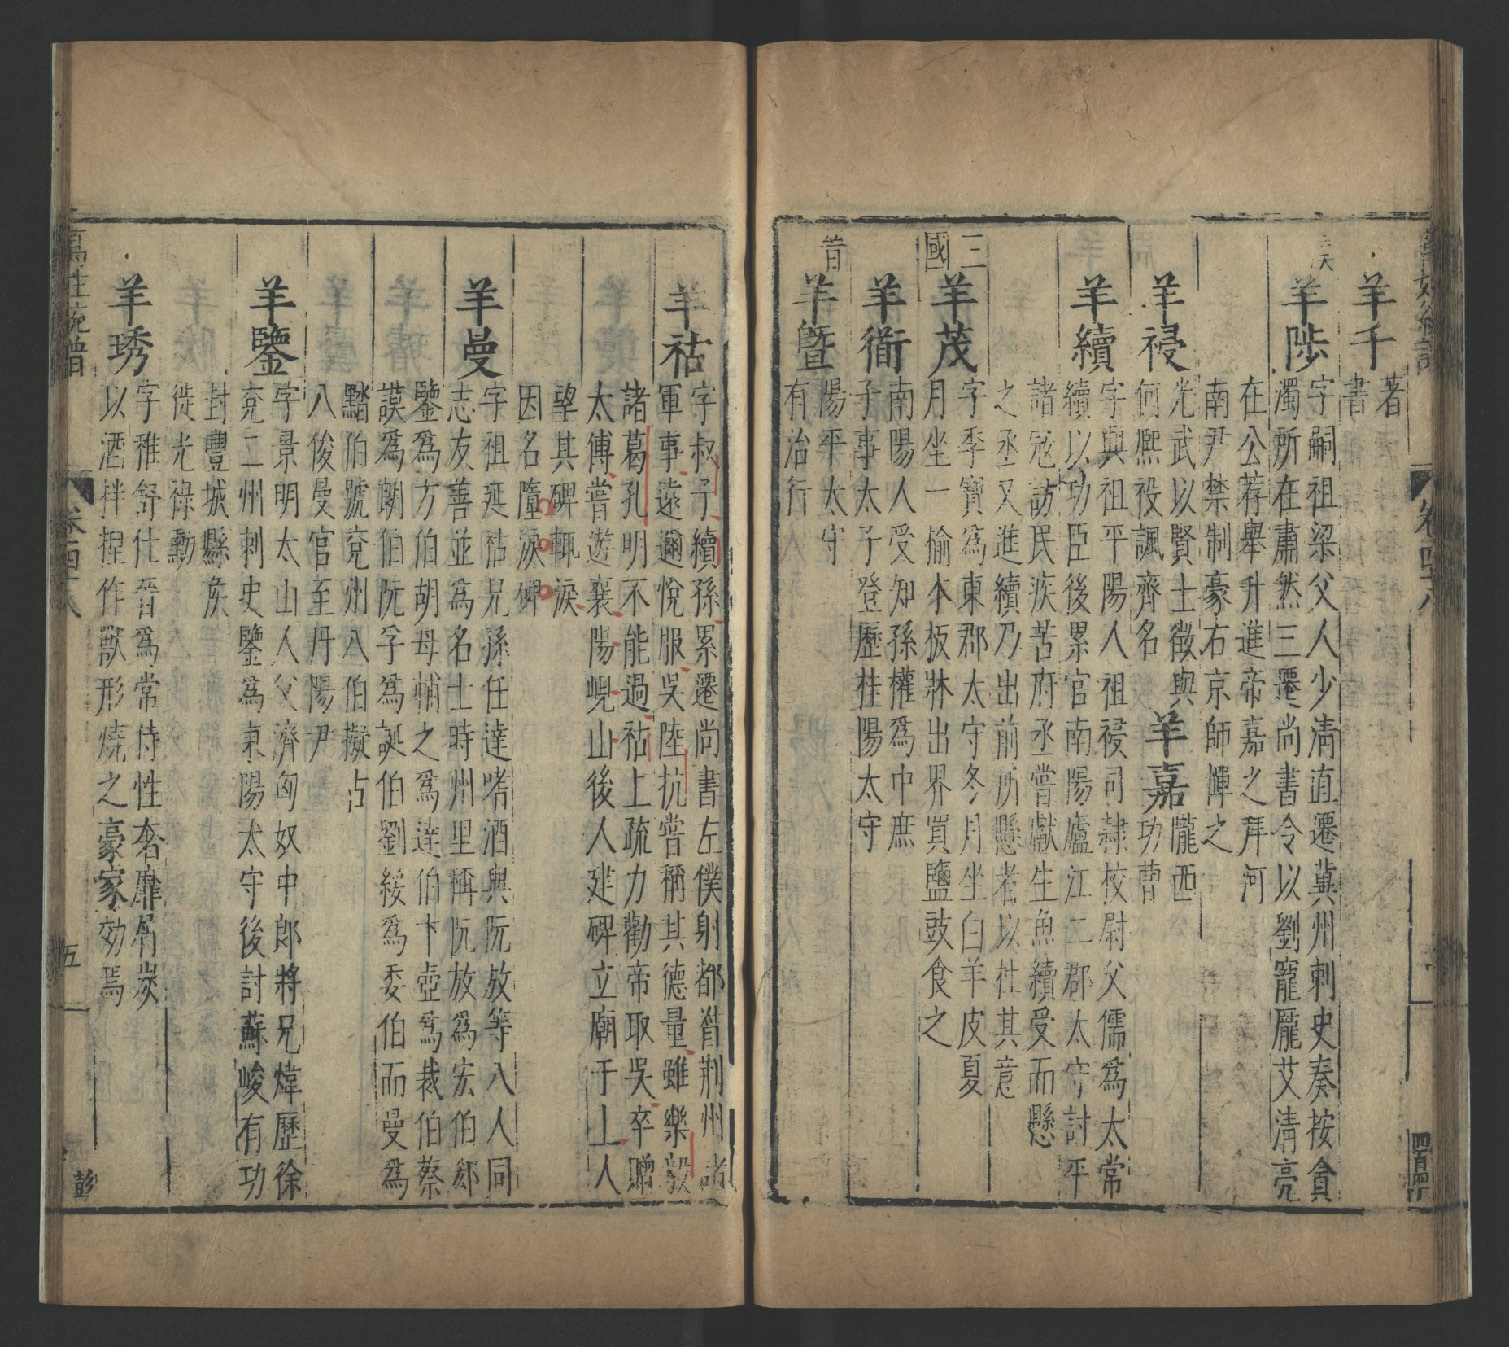 羊千
著
書
漢
羊陟
字嗣祖梁父人少清直遷冀州刺史奏按貪
濁所在肅然三遷尚書令以劉寵龐艾清亮
在公荐舉升進帝嘉之拜河
南尹禁制豪右京師憚之
羊祲
光武以賢士徵與
何熈祋諷齊名
羊嘉
隴西
功曹
羊續
字興祖平陽人祖祲司隷校尉父儒為太常
續以功臣後累官南陽廬江二郡太守討平
諸冦訪民疾苦府丞嘗獻生魚續受而懸
之丞又進續乃出前所懸者以杜其意
三國
羊茂
字季寶為東郡太守冬月坐白羊皮夏
月坐一榆木板牀出界買鹽豉食之
羊衜
南陽人受知孫權為中庶
子事太子登歷桂陽太守
晉
羊曁
陽平太守
有治行
羊祜
字叔子續孫累遷尚書左僕射都督荆州諸
軍事遠邇悅服吳陸抗嘗稱其德量雖樂毅
諸葛孔明不能過祜上疏力勸帝取吳卒贈
太傅嘗遊襄陽峴山後人建碑立廟于上人
望其碑輒淚
因名墮淚碑
羊曼
字祖延祜兄孫任達嗜酒與阮放等八人同
志友善並為名士時州里稱阮放為宏伯郄
鑒為方伯胡母輔之為達伯卞壺為裁伯蔡
謨為朗伯阮孚為誕伯劉綏為委伯而曼為
黯伯號兗州八伯擬古
八俊曼官至丹陽尹
羊鑒
字景明太山人父濟匈奴中郎將兄煒歷徐
兗二州刺史鑒為東陽太守後討蘇峻有功
封豐城縣矦
徙光祿勳
羊琇
字稚舒仕晉為常侍性奢靡屑炭
以酒拌捏作獸形燒之豪家効焉
萬姓統譜
卷四十八
五
彭